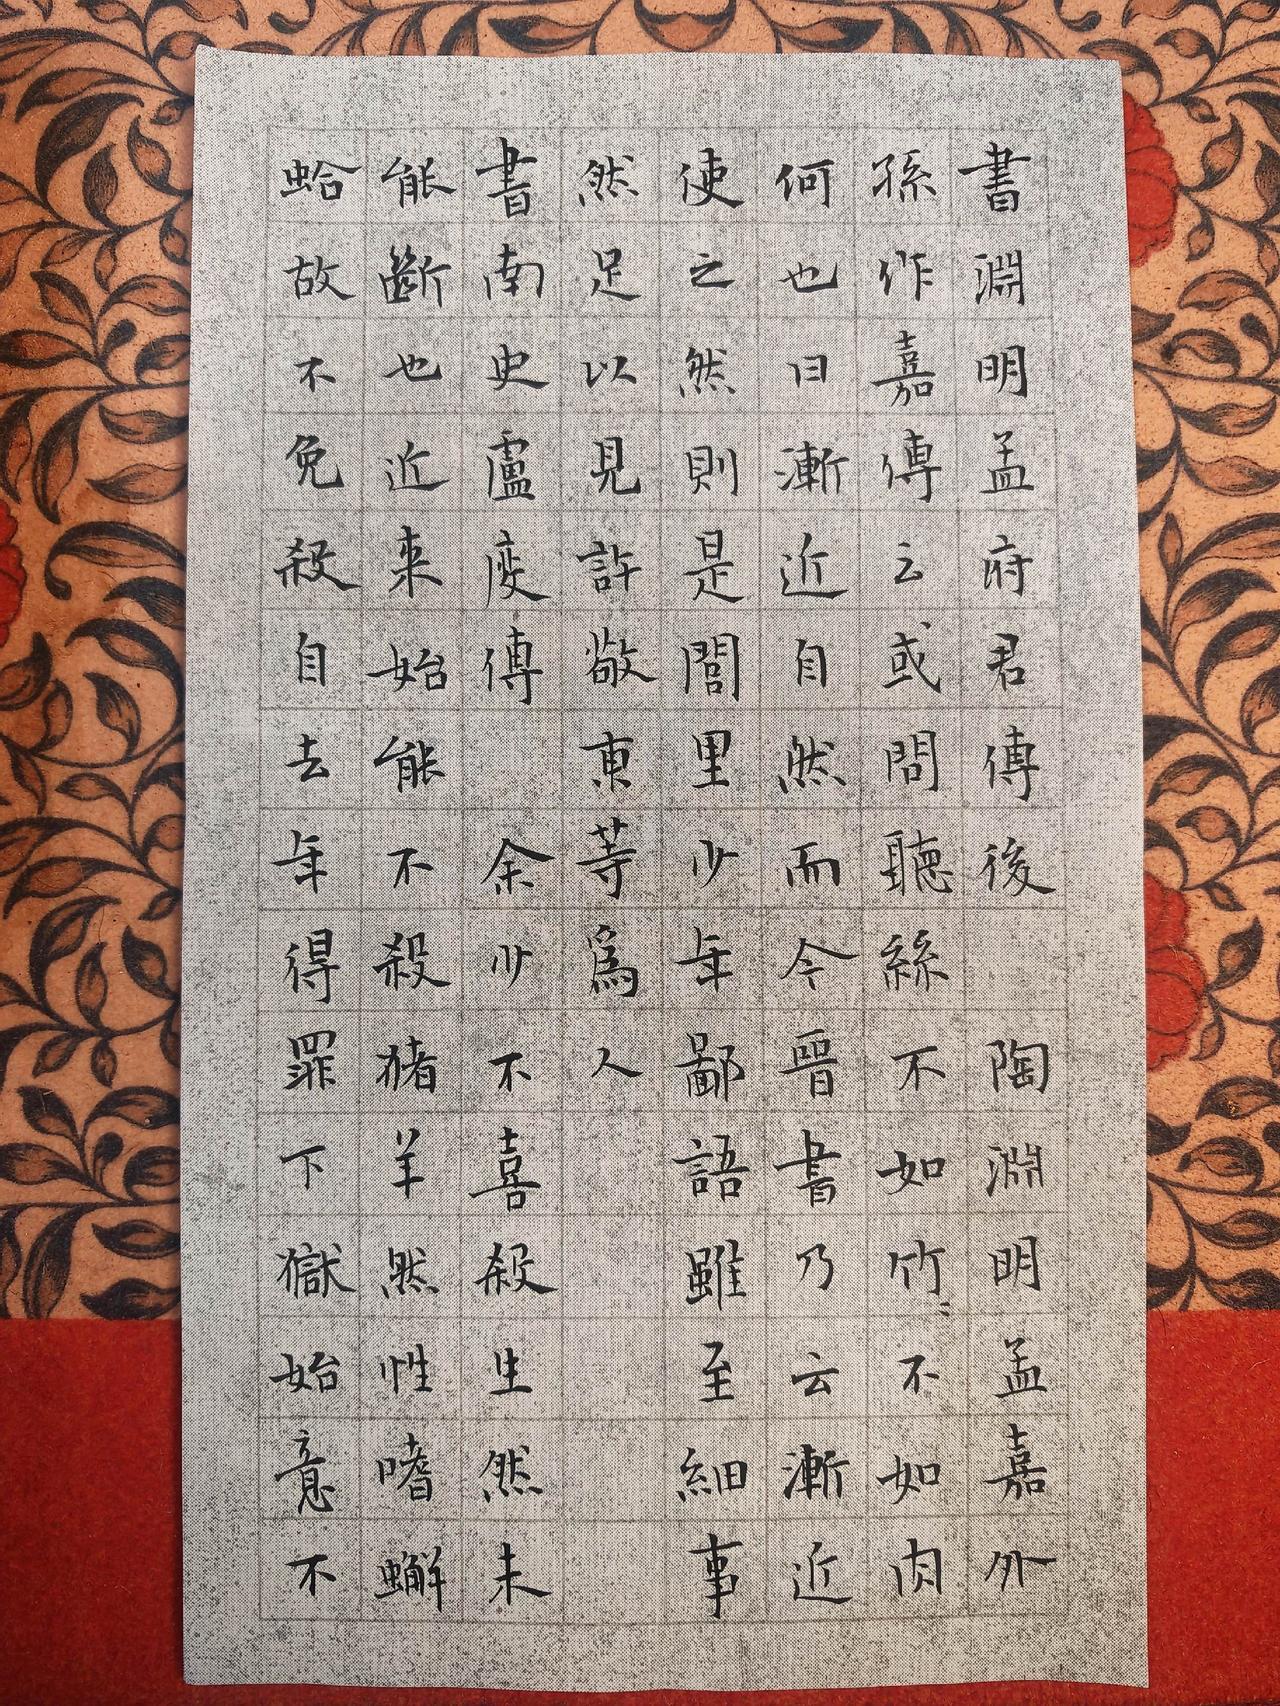 書淵明孟府君傳後 陶淵明孟嘉外
孫作嘉傳云或問聽絲不如竹〻不如肉
何也曰漸近自然而今晉書乃云漸近
使之然則是閭里少年鄙語雖至細事
然足以見許敬東等為人
書南史盧度傳 余少不喜殺生然未
能斷也近來始能不殺猪羊然性嗜蠏
蛤故不免殺自去年得罪下獄始意不